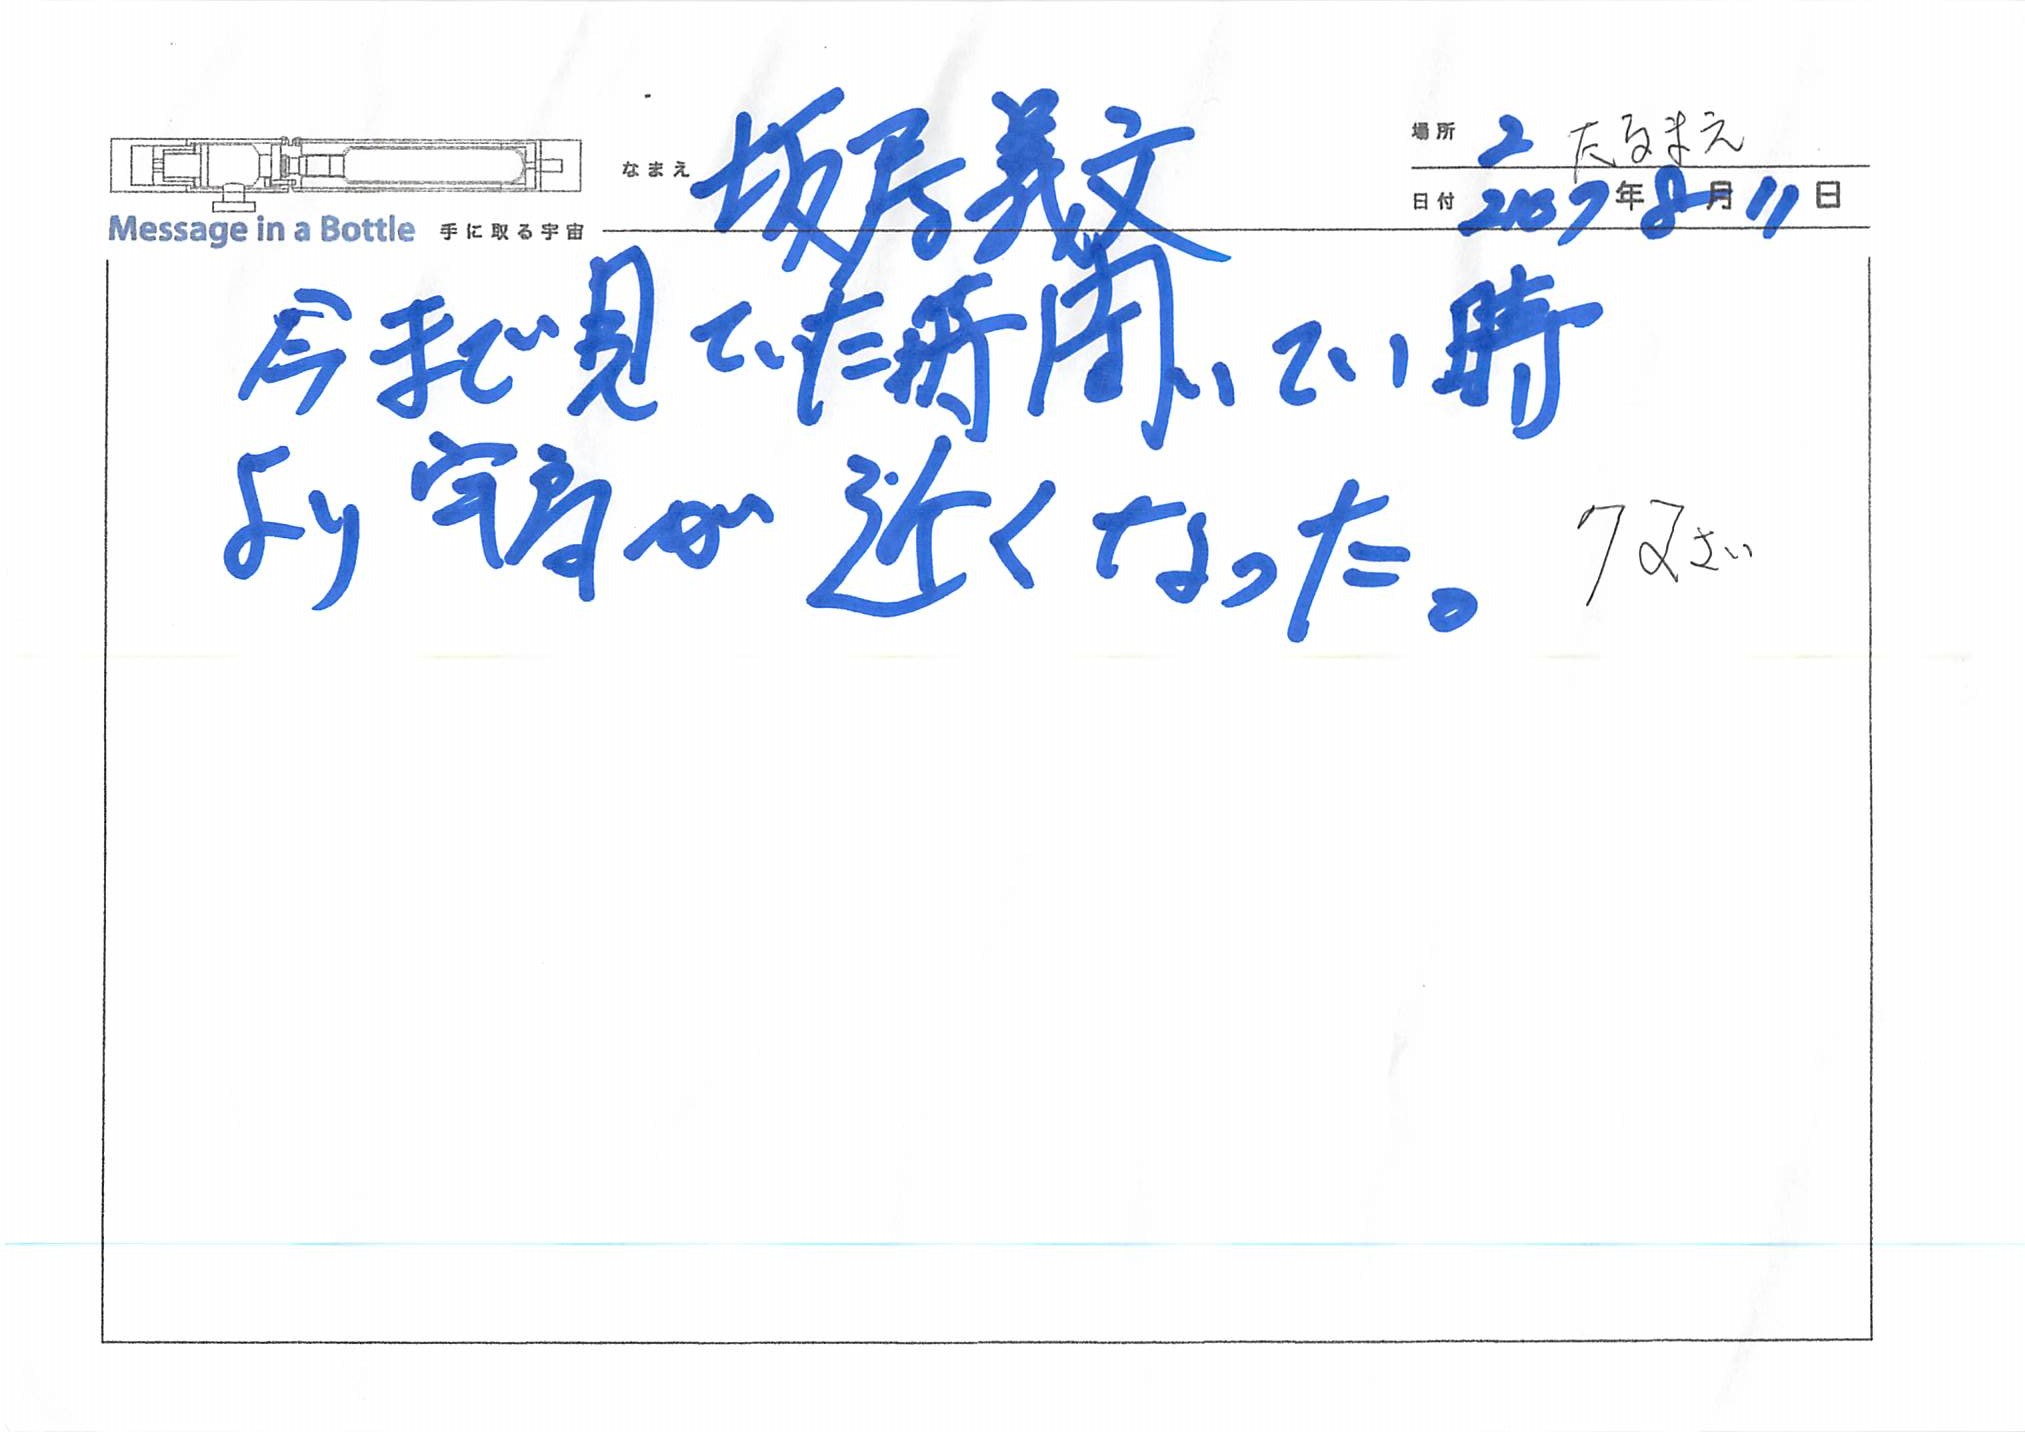 場所 2 たるまえ
なまえ 坂居義文
日付 2007年8月11日
Message in a Bottle 手に取る宇宙
今まで見ていた所聞いてい時
より宇宙が近くなった。
72さい